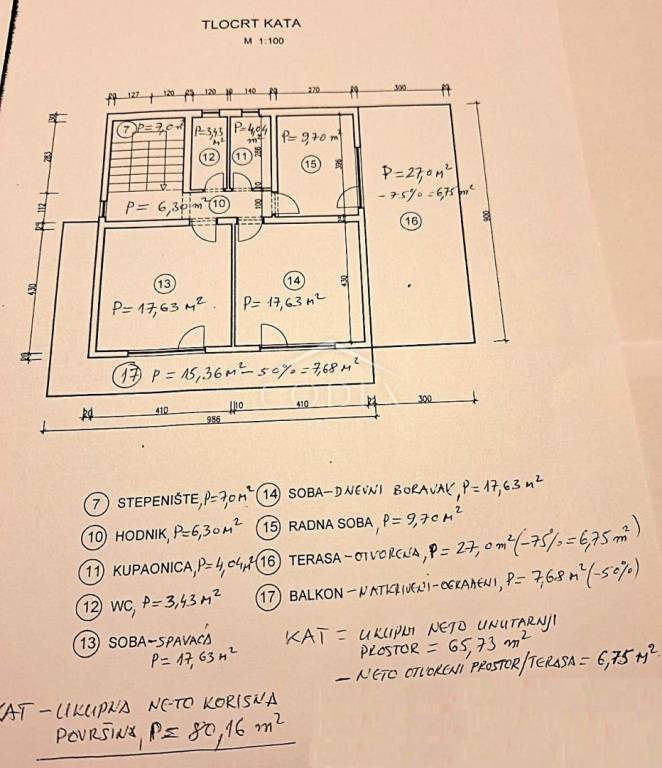 TLOCRT KATA
M 1:100
20 127 120 25 120 10 140 20 270 20 300 20
7 P=7,0 m²
P=3,43 m²
12
P=4,04 m²
11
286
P=9,70 m²
15
396
P=27,0 m²
-75%=6,75 m²
16
900
283
112
430
P=6,30 m²
10
100
13
P=17,63 m²
14
P=17,63 m²
430
17 P=15,36 m²-50%=7,68 m²
20 410 10 410 300
986
7 STEPENIŠTE, P=7,0 m²
10 HODNIK, P=6,30 m²
11 KUPAONICA, P=4,04 m²
12 WC, P=3,43 m²
13 SOBA-SPAVAĆA
P=17,63 m²
14 SOBA-DNEVNI BORAVAK, P=17,63 m²
15 RADNA SOBA, P=9,70 m²
16 TERASA-OTVORENA, P=27,0 m² (-75%=6,75 m²)
17 BALKON-NATKRIVENI-OGRAĐENI, P=7,68 m² (-50%)
KAT = UKUPNI NETO UNUTARNJI
PROSTOR = 65,73 m²
- NETO OTVORENI PROSTOR/TERASA = 6,75 m²
KAT - UKUPNA NETO KORISNA
POVRŠINA, P= 80,16 m²